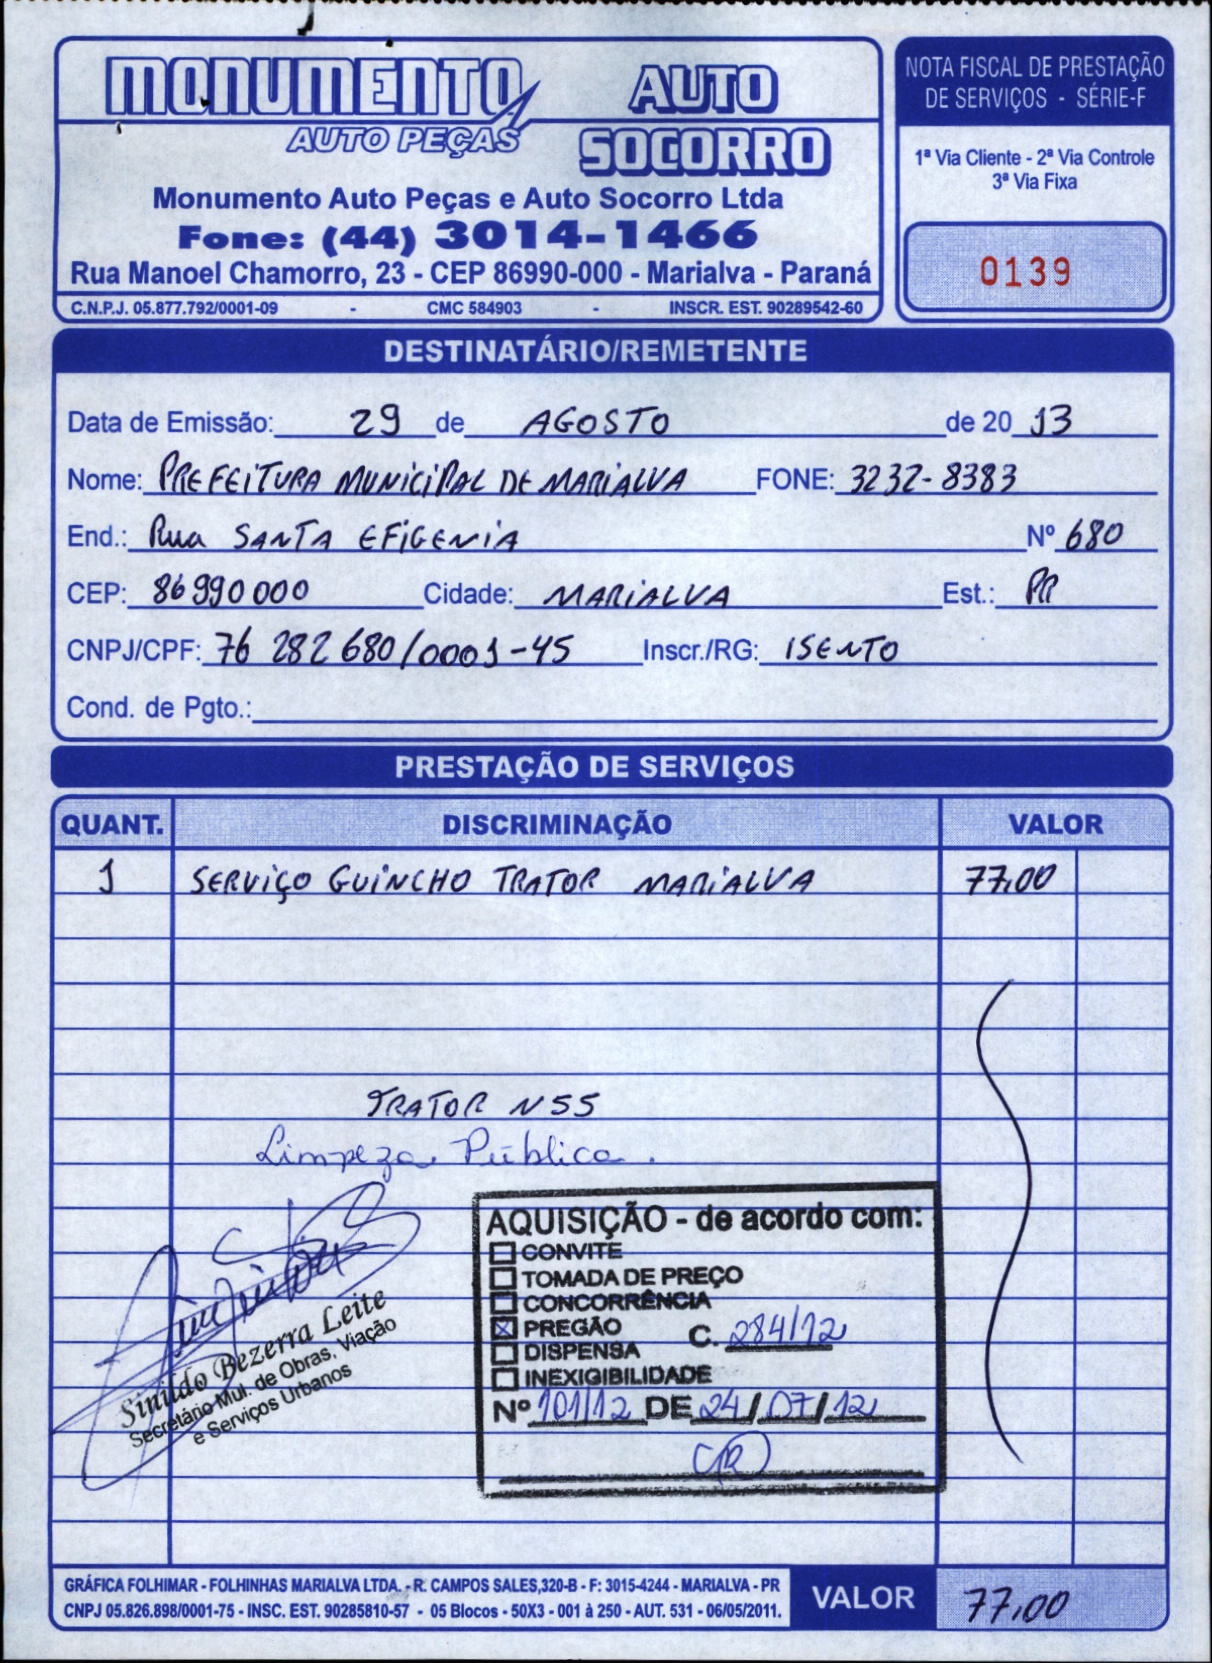 MONUMENTO
AUTO PEÇAS
AUTO
SOCORRO
Monumento Auto Peças e Auto Socorro Ltda
Fone: (44) 3014-1466
Rua Manoel Chamorro, 23 - CEP 86990-000 - Marialva - Paraná
C.N.P.J. 05.877.792/0001-09 - CMC 584903 - INSCR. EST. 90289542-60
NOTA FISCAL DE PRESTAÇÃO
DE SERVIÇOS - SÉRIE-F
1ª Via Cliente - 2ª Via Controle
3ª Via Fixa
0139
DESTINATÁRIO/REMETENTE
Data de Emissão: 29 de AGOSTO de 20 13
Nome: PREFEITURA MUNICIPAL DE MARIALVA FONE: 3232-8383
End.: Rua SANTA EFIGENIA Nº 680
CEP: 86990000 Cidade: MARIALVA Est.: PR
CNPJ/CPF: 76 282 680/0001-45 Inscr./RG: ISENTO
Cond. de Pgto.:
PRESTAÇÃO DE SERVIÇOS
QUANT. DISCRIMINAÇÃO VALOR
1 SERVIÇO GUINCHO TRATOR MARIALVA 77,00
TRATOR N55
Limpeza Pública.
Sinildo Bezerra Leite
Secretário Mul. de Obras, Viação
e Serviços Urbanos
AQUISIÇÃO - de acordo com:
CONVITE
TOMADA DE PREÇO
CONCORRÊNCIA
PREGÃO C. 284/12
DISPENSA
INEXIGIBILIDADE
Nº 101/12 DE 24/07/12
GRÁFICA FOLHIMAR - FOLHINHAS MARIALVA LTDA. - R. CAMPOS SALES,320-B - F: 3015-4244 - MARIALVA - PR
CNPJ 05.826.898/0001-75 - INSC. EST. 90285810-57 - 05 Blocos - 50X3 - 001 à 250 - AUT. 531 - 06/05/2011.
VALOR 77,00